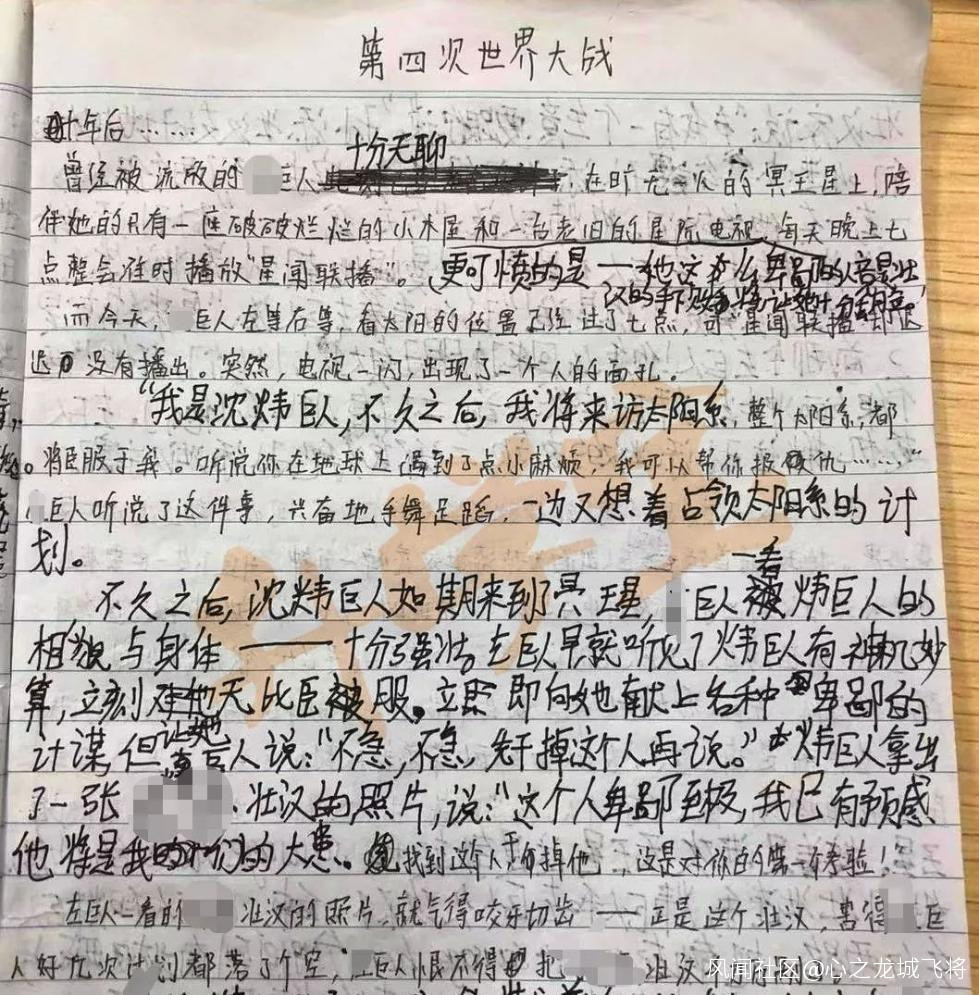 第四次世界大战
卅年后……
十分无聊
曾经被流放的 巨人 ,在旷无一人的冥王星上,陪
伴她的只有一座破破烂烂的小木屋和一台老旧的星际电视,每天晚上七
点整会准时播放“星闻联播”。更可愤的是——她这 么卑鄙的人 是壮
汉的手下败将
而今天, 巨人左等右等,看太阳的位置已经过了七点,可“星闻联播”却迟
迟 没有播出。突然,电视一闪,出现了一个人的面孔。
“我是沈炜巨人,不久之后,我将来访太阳系,整个太阳系,都
将臣服于我。听说你在地球上遇到了点小麻烦,我可以帮你报 仇……”
巨人听说了这件事,兴奋地手舞足蹈,一边又想着占领太阳系的计
划。
一看
不久之后,沈炜巨人如期来到了冥王星, 巨人被炜巨人的
相貌与身体——十分强壮。左巨人早就听说了炜巨人有神机妙
算,立刻对他无比臣服。立即向她献上各种 卑鄙的
计谋,但 巨人说:“不急,不急,先干掉这个人再说。”炜巨人拿出
了一张 壮汉的照片,说:“这个人卑鄙至极,我已有预感
他将是我们的大患。找到这个人干掉他,这是对你的第一个考验!
左巨人一看的 壮汉的照片,就气得咬牙切齿——正是这个壮汉,害得 巨
人好几次计划都落了个空, 巨人恨不得 把 壮汉
风闻社区@心之龙城飞将